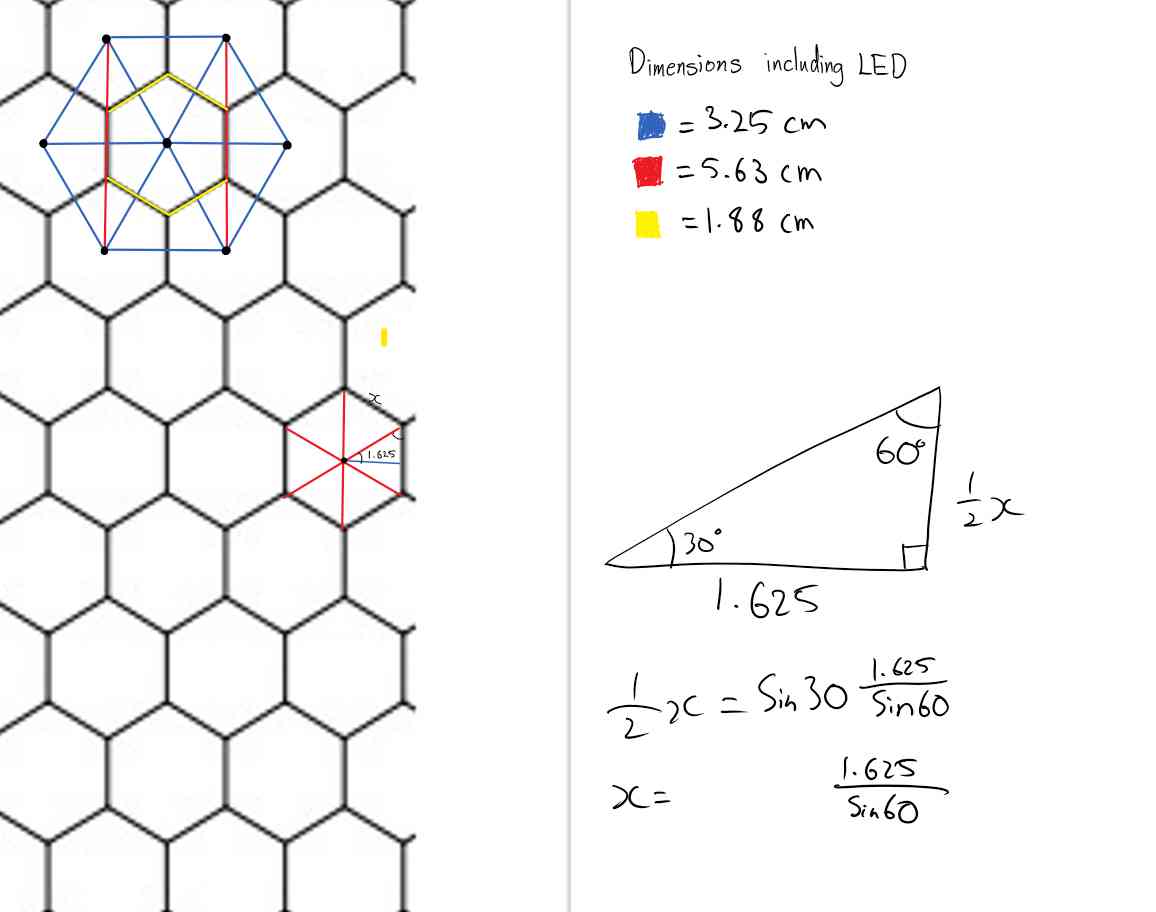 Dimensions including LED
= 3.25 cm
= 5.63 cm
= 1.88 cm
x
1.625
60°
30°
1/2 x
1.625
1/2 x = Sin30 1.625/Sin60
x = 1.625/Sin60